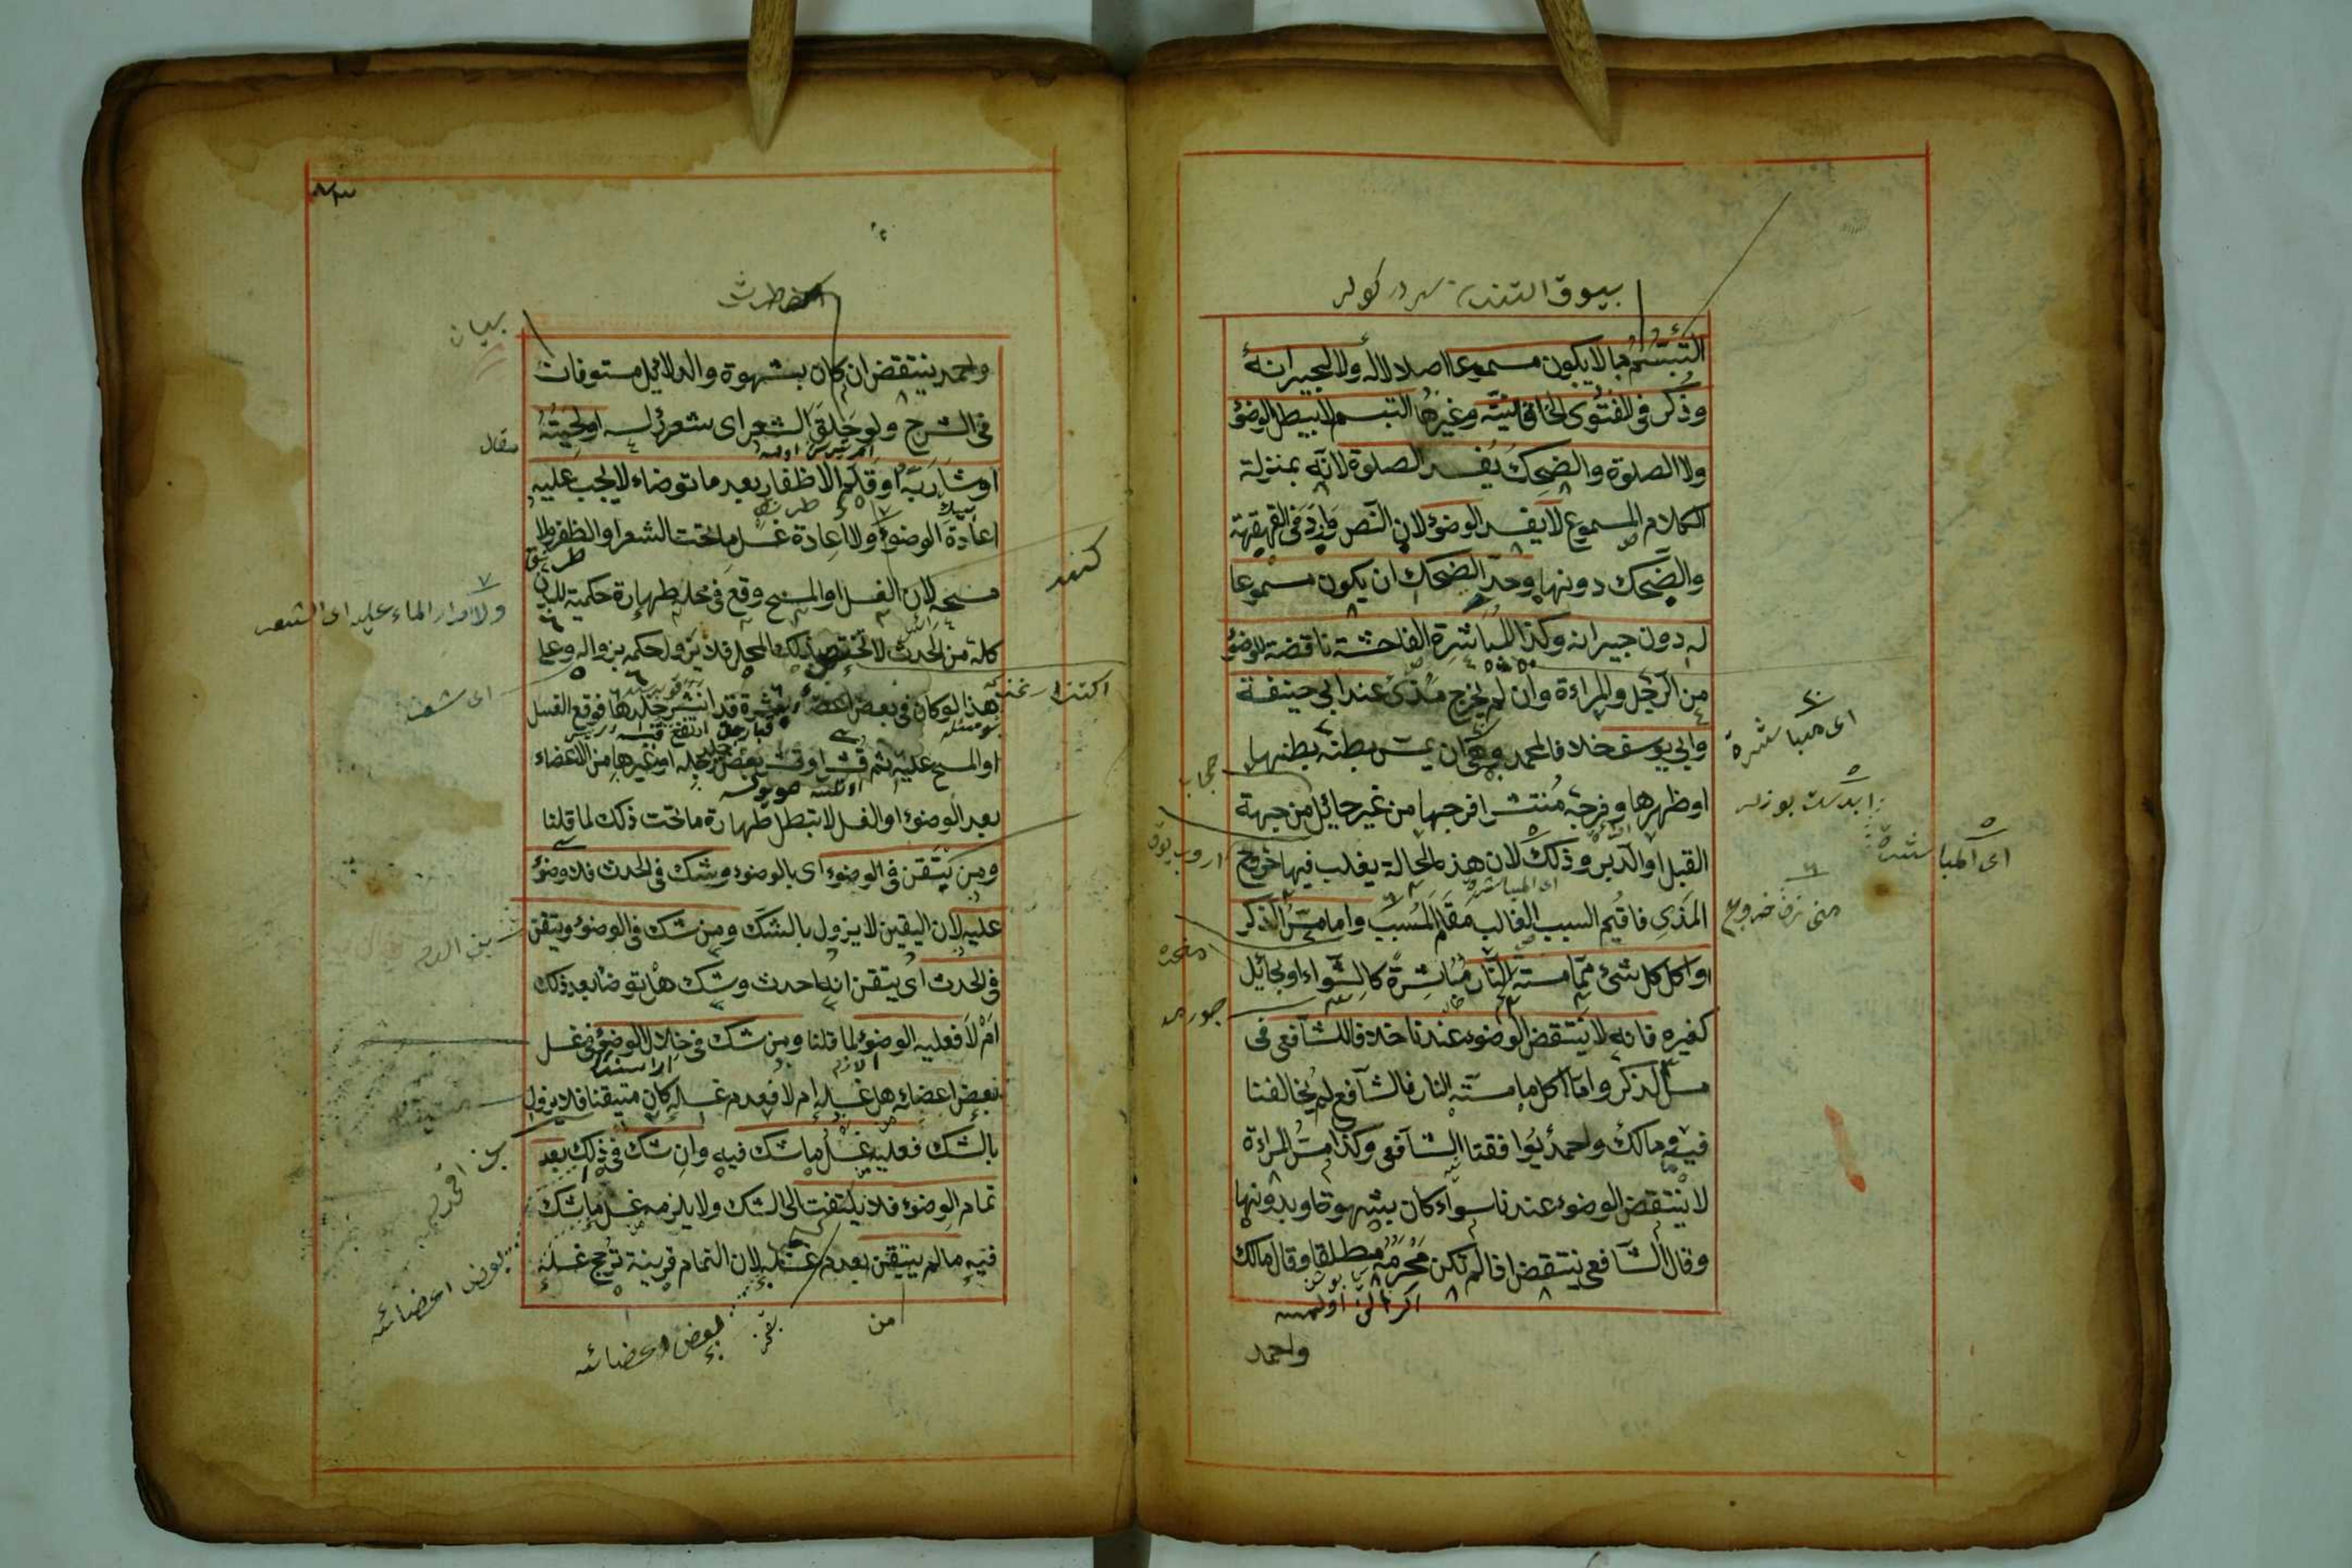 التبسم بما لا يكون مسموعا اصلا لا له ولا لجيرانه
وذكر في الفتوى الخاقانية وغيرها التبسم لا يبطل الوضوء
ولا الصلوة والضحك يفسد الصلوة لانه بمنزلة
الكلام المسموع لا يفسد الوضوء لان النص وارد في القهقهة
والضحك دونها وحد الضحك ان يكون مسموعا
له دون جيرانه وكذا المباشرة الفاحشة ناقضة للوضوء
من الرجل والمراءة وان لم يخرج مذى عند ابي حنيفة
وابي يوسف خلافا لمحمد وهي ان يمس بطنه بطنها
او ظهرها وفرجه منتشرا فرجها من غير حائل من جهة
القبل او الدبر وذلك لان هذه الحالة يغلب فيها خروج
المذي فاقيم السبب الغالب مقام المسبب واما مس الذكر
او اكل كل شئ مما مسته النار مباشرة كالشواء او بحائل
كغيره فانه لا ينتقض الوضوء عندنا خلافا للشافعي في
مس الذكر واما اكل ما مسته النار فالشافع لم يخالفنا
فيه ومالك واحمد يوافقنا الشافعي وكذا مس المراءة
لا ينتقض الوضوء عندنا سواء كان بشهوة او بدونها
وقال الشافعي ينتقض اذا لم تكن محرمة مطلقا وقال مالك
واحمد
اى مباشرة
اى المباشرة
حجاب
واحمد ينتقض ان كان بشهوة والدلائل مستوفات
في الشرح ولو حلق الشعر اى شعر رأسه او لحيته
او شاربه او قلم الاظفار بعد ما توضاء لا يجب عليه
اعادة الوضوء ولا اعادة غسل ما تحت الشعر او الظفر ولا
مسحه لان الغسل او المسح وقع في محله طهارة حكمية للبدن
كله من الحدث لا تختص بذلك المحل فلا يزول حكمه بزواله وعلى
هذا لو كان في بعض اعضائه بثرة قد انتشر جلدها فوقع الغسل
او المسح عليه ثم قشر او قشر بعض جلد رجله او غيرها من الاعضاء
بعد الوضوء او الغسل لا تبطل طهارة ما تحت ذلك لما قلنا
ومن يتيقن في الوضوء اى بالوضوء وشك في الحدث فلا وضوء
عليه لان اليقين لا يزول بالشك ومن شك في الوضوء ويتقن
في الحدث اى يتيقن انه احدث وشك هل توضا بعد ذلك
ام لا فعليه الوضوء لما قلنا ومن شك في خلال الوضوء في غسل
بعض اعضائه هل غسله ام لا فعدم غسله كان متيقنا فلا يزول
بالشك فعليه غسل ما شك فيه وان شك في ذلك بعد
تمام الوضوء فلا يلتفت الى الشك ولا يلزمه غسل ما شك
فيه ما لم يتيقن بعدم غسله لان التمام قرينة ترجح غسله
بيان
ولا امرار الماء عليه اى الشعر
بعض اعضائه
بعض اعضائه
من